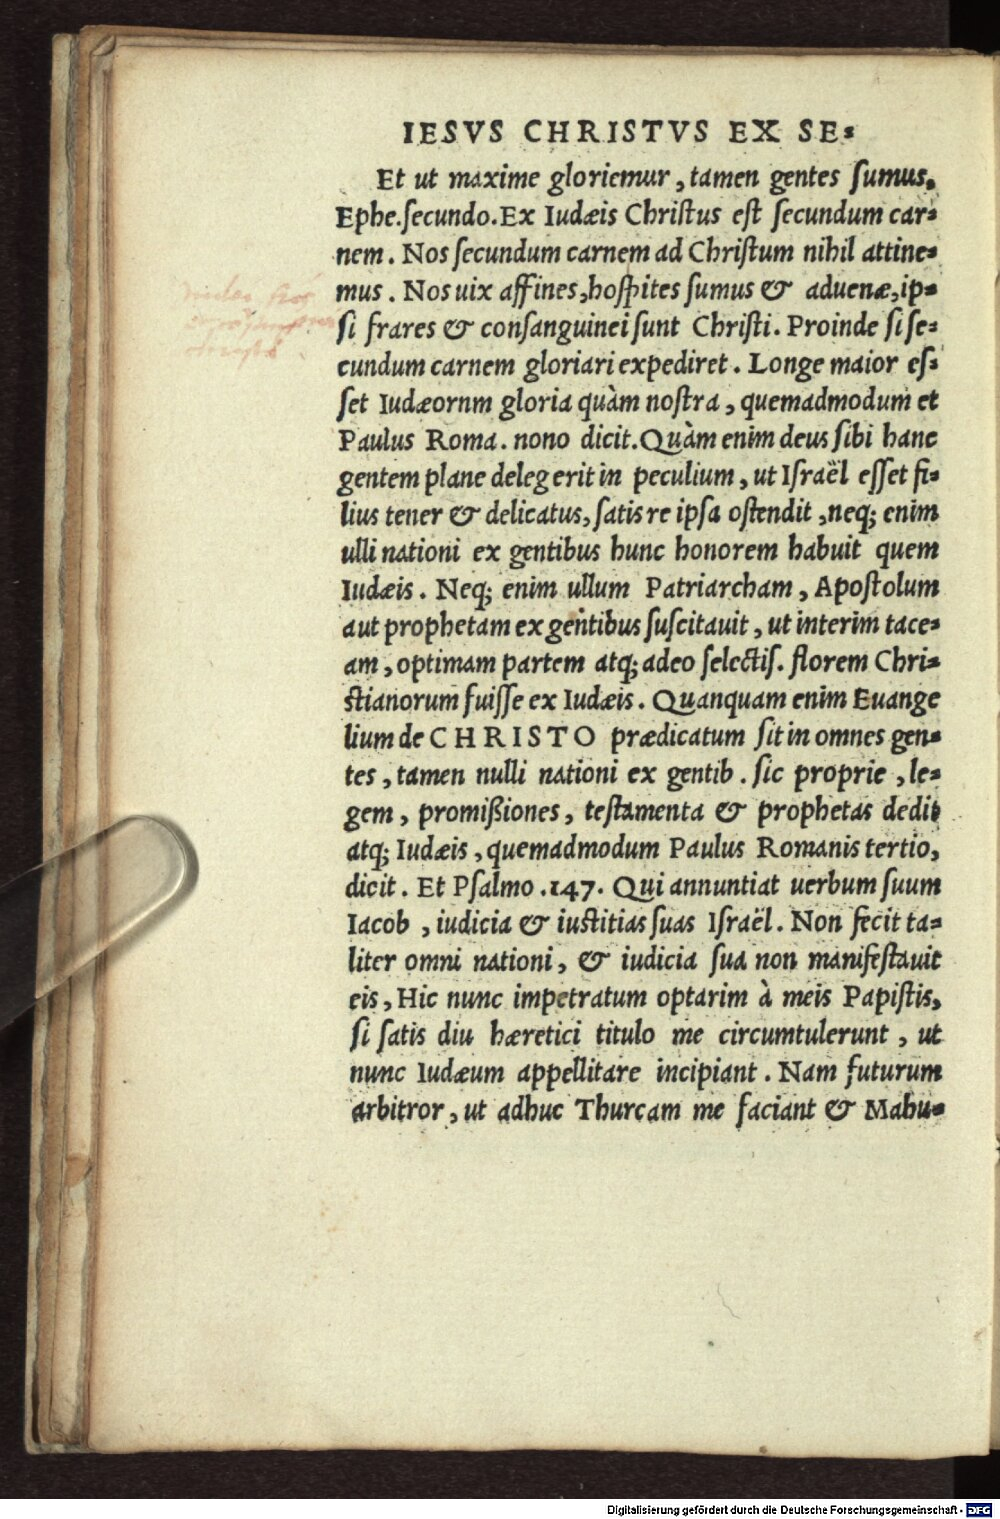 IESVS CHRISTVS EX SE-
Et ut maxime gloriemur, tamen gentes sumus.
Ephe.secundo.Ex Iudæis Christus est secundum car-
nem. Nos secundum carnem ad Christum nihil attine-
mus. Nos uix affines, hospites sumus & aduenæ, ip-
si frares & consanguinei sunt Christi. Proinde si se-
cundum carnem gloriari expediret. Longe maior es-
set Iudæornm gloria quàm nostra, quemadmodum et
Paulus Roma. nono dicit. Quàm enim deus sibi hanc
gentem plane delegerit in peculium, ut Israël esset fi-
lius tener & delicatus, satis re ipsa ostendit, neq; enim
ulli nationi ex gentibus hunc honorem habuit quem
Iudæis. Neq; enim ullum Patriarcham, Apostolum
aut prophetam ex gentibus suscitauit, ut interim tace-
am, optimam partem atq; adeo selectis. florem Chri-
stianorum fuisse ex Iudæis. Quanquam enim Euange
lium de CHRISTO prædicatum sit in omnes gen-
tes, tamen nulli nationi ex gentib. sic proprie, le-
gem, promißiones, testamenta & prophetas dedit
atq; Iudæis, quemadmodum Paulus Romanis tertio,
dicit. Et Psalmo .147. Qui annuntiat uerbum suum
Iacob, iudicia & iustitias suas Israël. Non fecit ta-
liter omni nationi, & iudicia sua non manifestauit
eis, Hic nunc impetratum optarim à meis Papistis,
si satis diu hæretici titulo me circumtulerunt, ut
nunc Iudæum appellitare incipiant. Nam futurum
arbitror, ut adhuc Thurcam me faciant & Mahu-
Digitalisierung gefördert durch die Deutsche Forschungsgemeinschaft - DFG